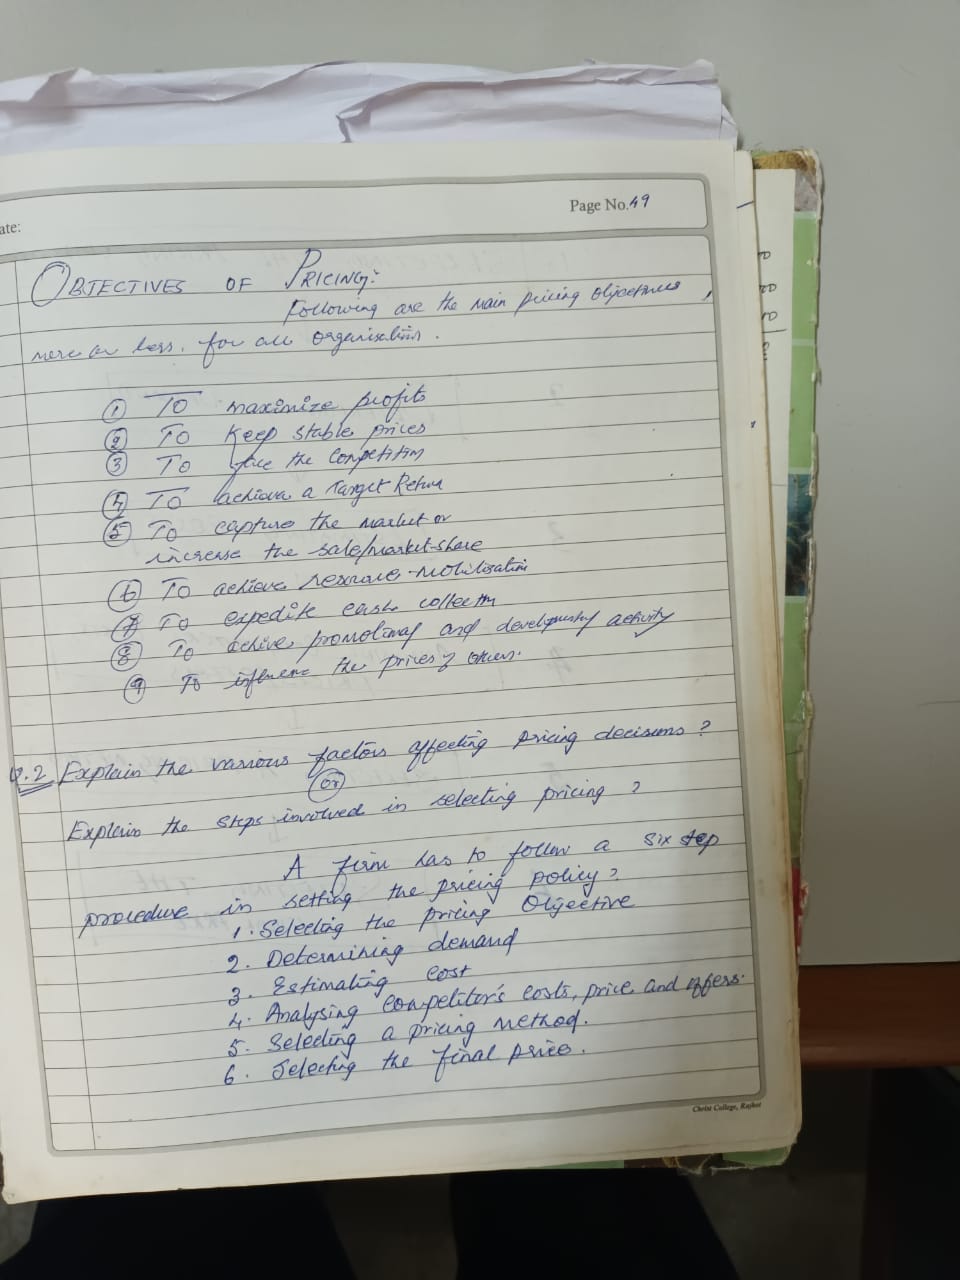 ate:
Page No. 49
OBJECTIVES OF PRICING:
Following are the main pricing objectives,
more or less, for all organisations.
① To maximize profits
② To Keep stable prices
③ To face the Competition
④ To achieve a Target Return
⑤ To capture the market or
increase the sale/market-share
⑥ To achieve resource-mobilisation
⑦ To expedite cash collection
⑧ To achive promotional and developmental activity
⑨ To influence the prices of others.
Q.2 Explain the various factors affecting pricing decisions?
(or)
Explain the steps involved in selecting pricing?
A firm has to follow a six step
procedure in setting the pricing policy?
1. Selecting the pricing Objective
2. Determining demand
3. Estimating cost
4. Analysing Competitor's costs, price and offers.
5. Selecting a pricing method.
6. Selecting the final price.
Christ College, Rajkot